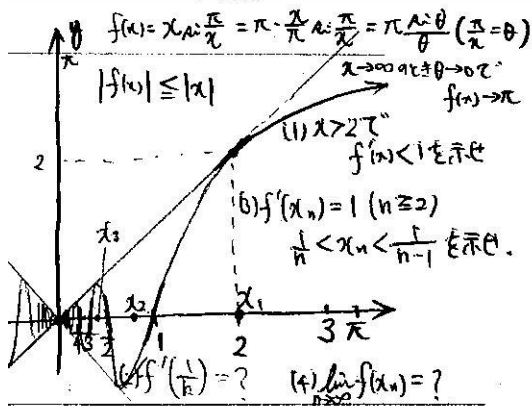 f(x) = x sin π/x = π · x/π sin π/x = π sinθ/θ (π/x = θ)
y
π
x→∞のときθ→0で
|f(x)| ≦ |x|
f(x)→π
(1) x>2で
f'(x)<1を示せ
2
(3) f'(xₙ) = 1 (n≧2)
1/n < xₙ < 1/(n-1) を示せ.
x₃
x₂
x₁
1
2
3
π
x
f'(1/n) = ?
(4) lim n→∞ f(xₙ) = ?